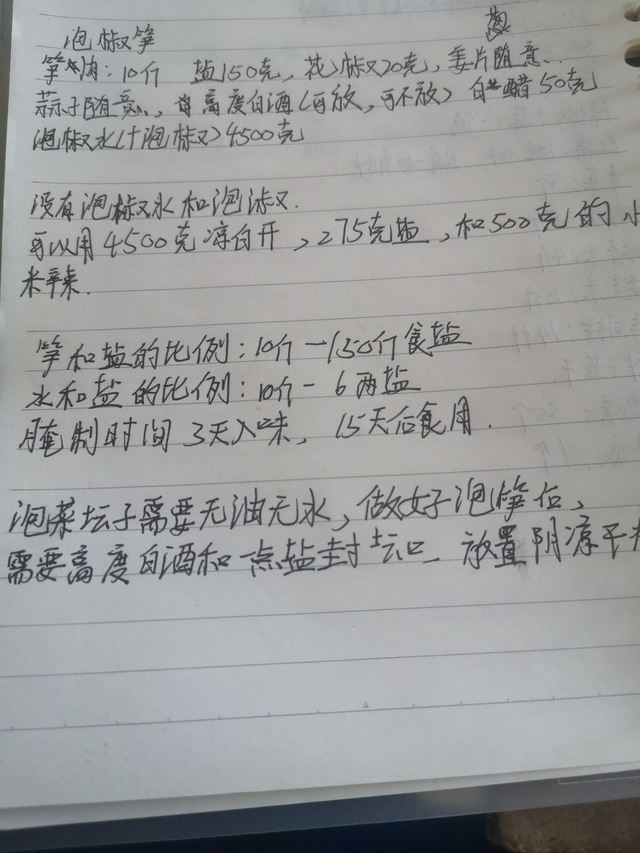 泡椒笋
葱
笋肉:10斤 盐150克,花椒20克,姜片随意..
蒜子随意..,高度白酒(可放,可不放)白醋50克
泡椒水(+泡椒)4500克
没有泡椒水和泡椒.
可以用4500克凉白开,275克盐,和500克的小
米辣.
笋和盐的比例:10斤一150斤食盐
水和盐的比例:10斤-6两盐
腌制时间3天入味,15天后食用.
泡菜坛子需要无油无水,做好泡笋后,
需要高度白酒和一点盐封坛口 放置阴凉干